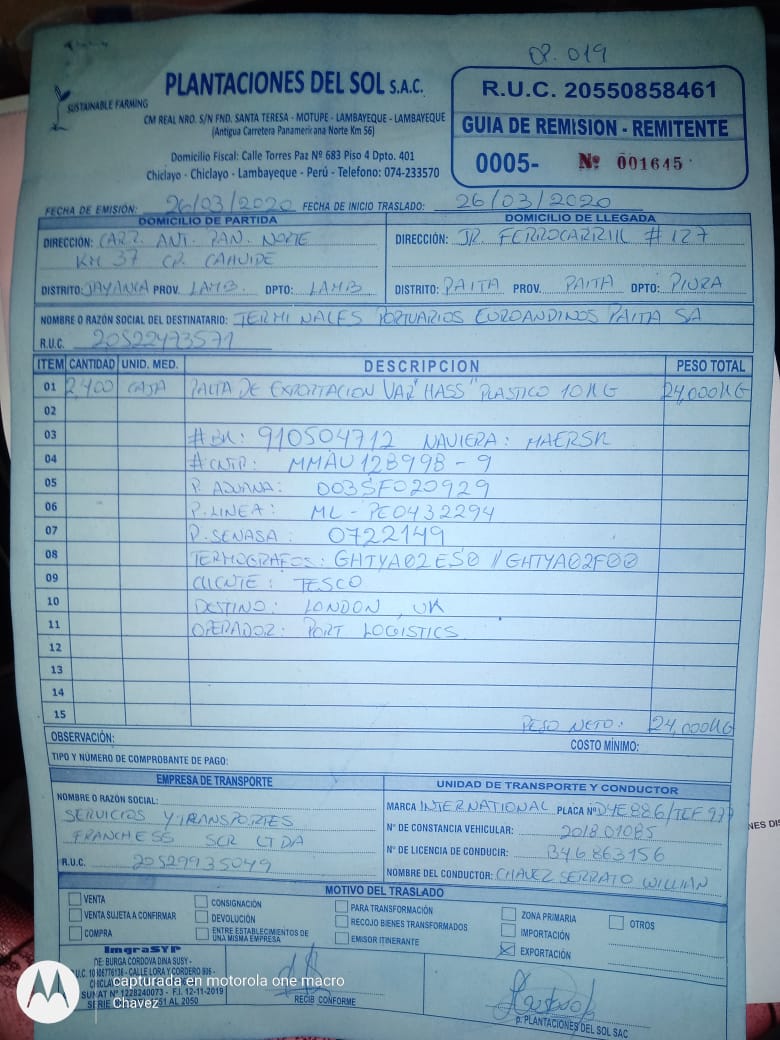 OP. 019
SUSTAINABLE FARMING
PLANTACIONES DEL SOL S.A.C.
CM REAL NRO. S/N FND. SANTA TERESA - MOTUPE - LAMBAYEQUE - LAMBAYEQUE
(Antigua Carretera Panamericana Norte Km 56)
Domicilio Fiscal: Calle Torres Paz Nº 683 Piso 4 Dpto. 401
Chiclayo - Chiclayo - Lambayeque - Perú - Telefono: 074-233570
R.U.C. 20550858461
GUIA DE REMISION - REMITENTE
0005- Nº 001645
FECHA DE EMISIÓN: 26/03/2020 FECHA DE INICIO TRASLADO: 26/03/2020
DOMICILIO DE PARTIDA
DIRECCIÓN: CARR. ANT. PAN. NORTE
KM 37 CP. CAHUIDE
DISTRITO: JAYANCA PROV. LAMB. DPTO: LAMB
DOMICILIO DE LLEGADA
DIRECCIÓN: JR. FERROCARRIL # 127
DISTRITO: PAITA PROV. PAITA DPTO: PIURA
NOMBRE O RAZÓN SOCIAL DEL DESTINATARIO: TERMINALES PORTUARIOS EUROANDINOS PAITA SA
R.U.C. 20522473571
ITEM CANTIDAD UNID. MED. DESCRIPCION PESO TOTAL
01 2,400 CAJA PALTA DE EXPORTACION VAR "HASS" PLASTICO 10KG 24,000KG
02
03 # BK: 910504712 NAVIERA: MAERSK
04 # CNTR: MMAU 128998-9
05 P. ADUANA: 003SF020929
06 P. LINEA: ML-PE0432294
07 P. SENASA: 0722149
08 TERMOGRAFOS: GHTYA02ES0 // GHTYA02F00
09 CLIENTE: TESCO
10 DESTINO: LONDON, UK
11 OPERADOR: PORT LOGISTICS
12
13
14
15 PESO NETO: 24,000KG
OBSERVACIÓN: COSTO MÍNIMO:
TIPO Y NÚMERO DE COMPROBANTE DE PAGO:
EMPRESA DE TRANSPORTE
NOMBRE O RAZÓN SOCIAL:
SERVICIOS Y TRANSPORTES
FRANCHESS SCR LTDA
R.U.C. 20529935049
UNIDAD DE TRANSPORTE Y CONDUCTOR
MARCA INTERNATIONAL PLACA Nº D4E886/TEF977
Nº DE CONSTANCIA VEHICULAR: 201801085
Nº DE LICENCIA DE CONDUCIR: B46863156
NOMBRE DEL CONDUCTOR: CHAVEZ SERRATO WILLIAN
MOTIVO DEL TRASLADO
VENTA
VENTA SUJETA A CONFIRMAR
COMPRA
CONSIGNACIÓN
DEVOLUCIÓN
ENTRE ESTABLECIMIENTOS DE UNA MISMA EMPRESA
PARA TRANSFORMACIÓN
RECOJO BIENES TRANSFORMADOS
EMISOR ITINERANTE
ZONA PRIMARIA
IMPORTACIÓN
EXPORTACIÓN
OTROS
ImgraSYP
DE: BURGA CORDOVA DINA SUSY -
CALLE LORA Y CORDERO
SUNAT Nº 1228240073 - F.I. 12-11-2019
AL 2050
RECIBÍ CONFORME
p. PLANTACIONES DEL SOL SAC
capturada en motorola one macro
Chavez